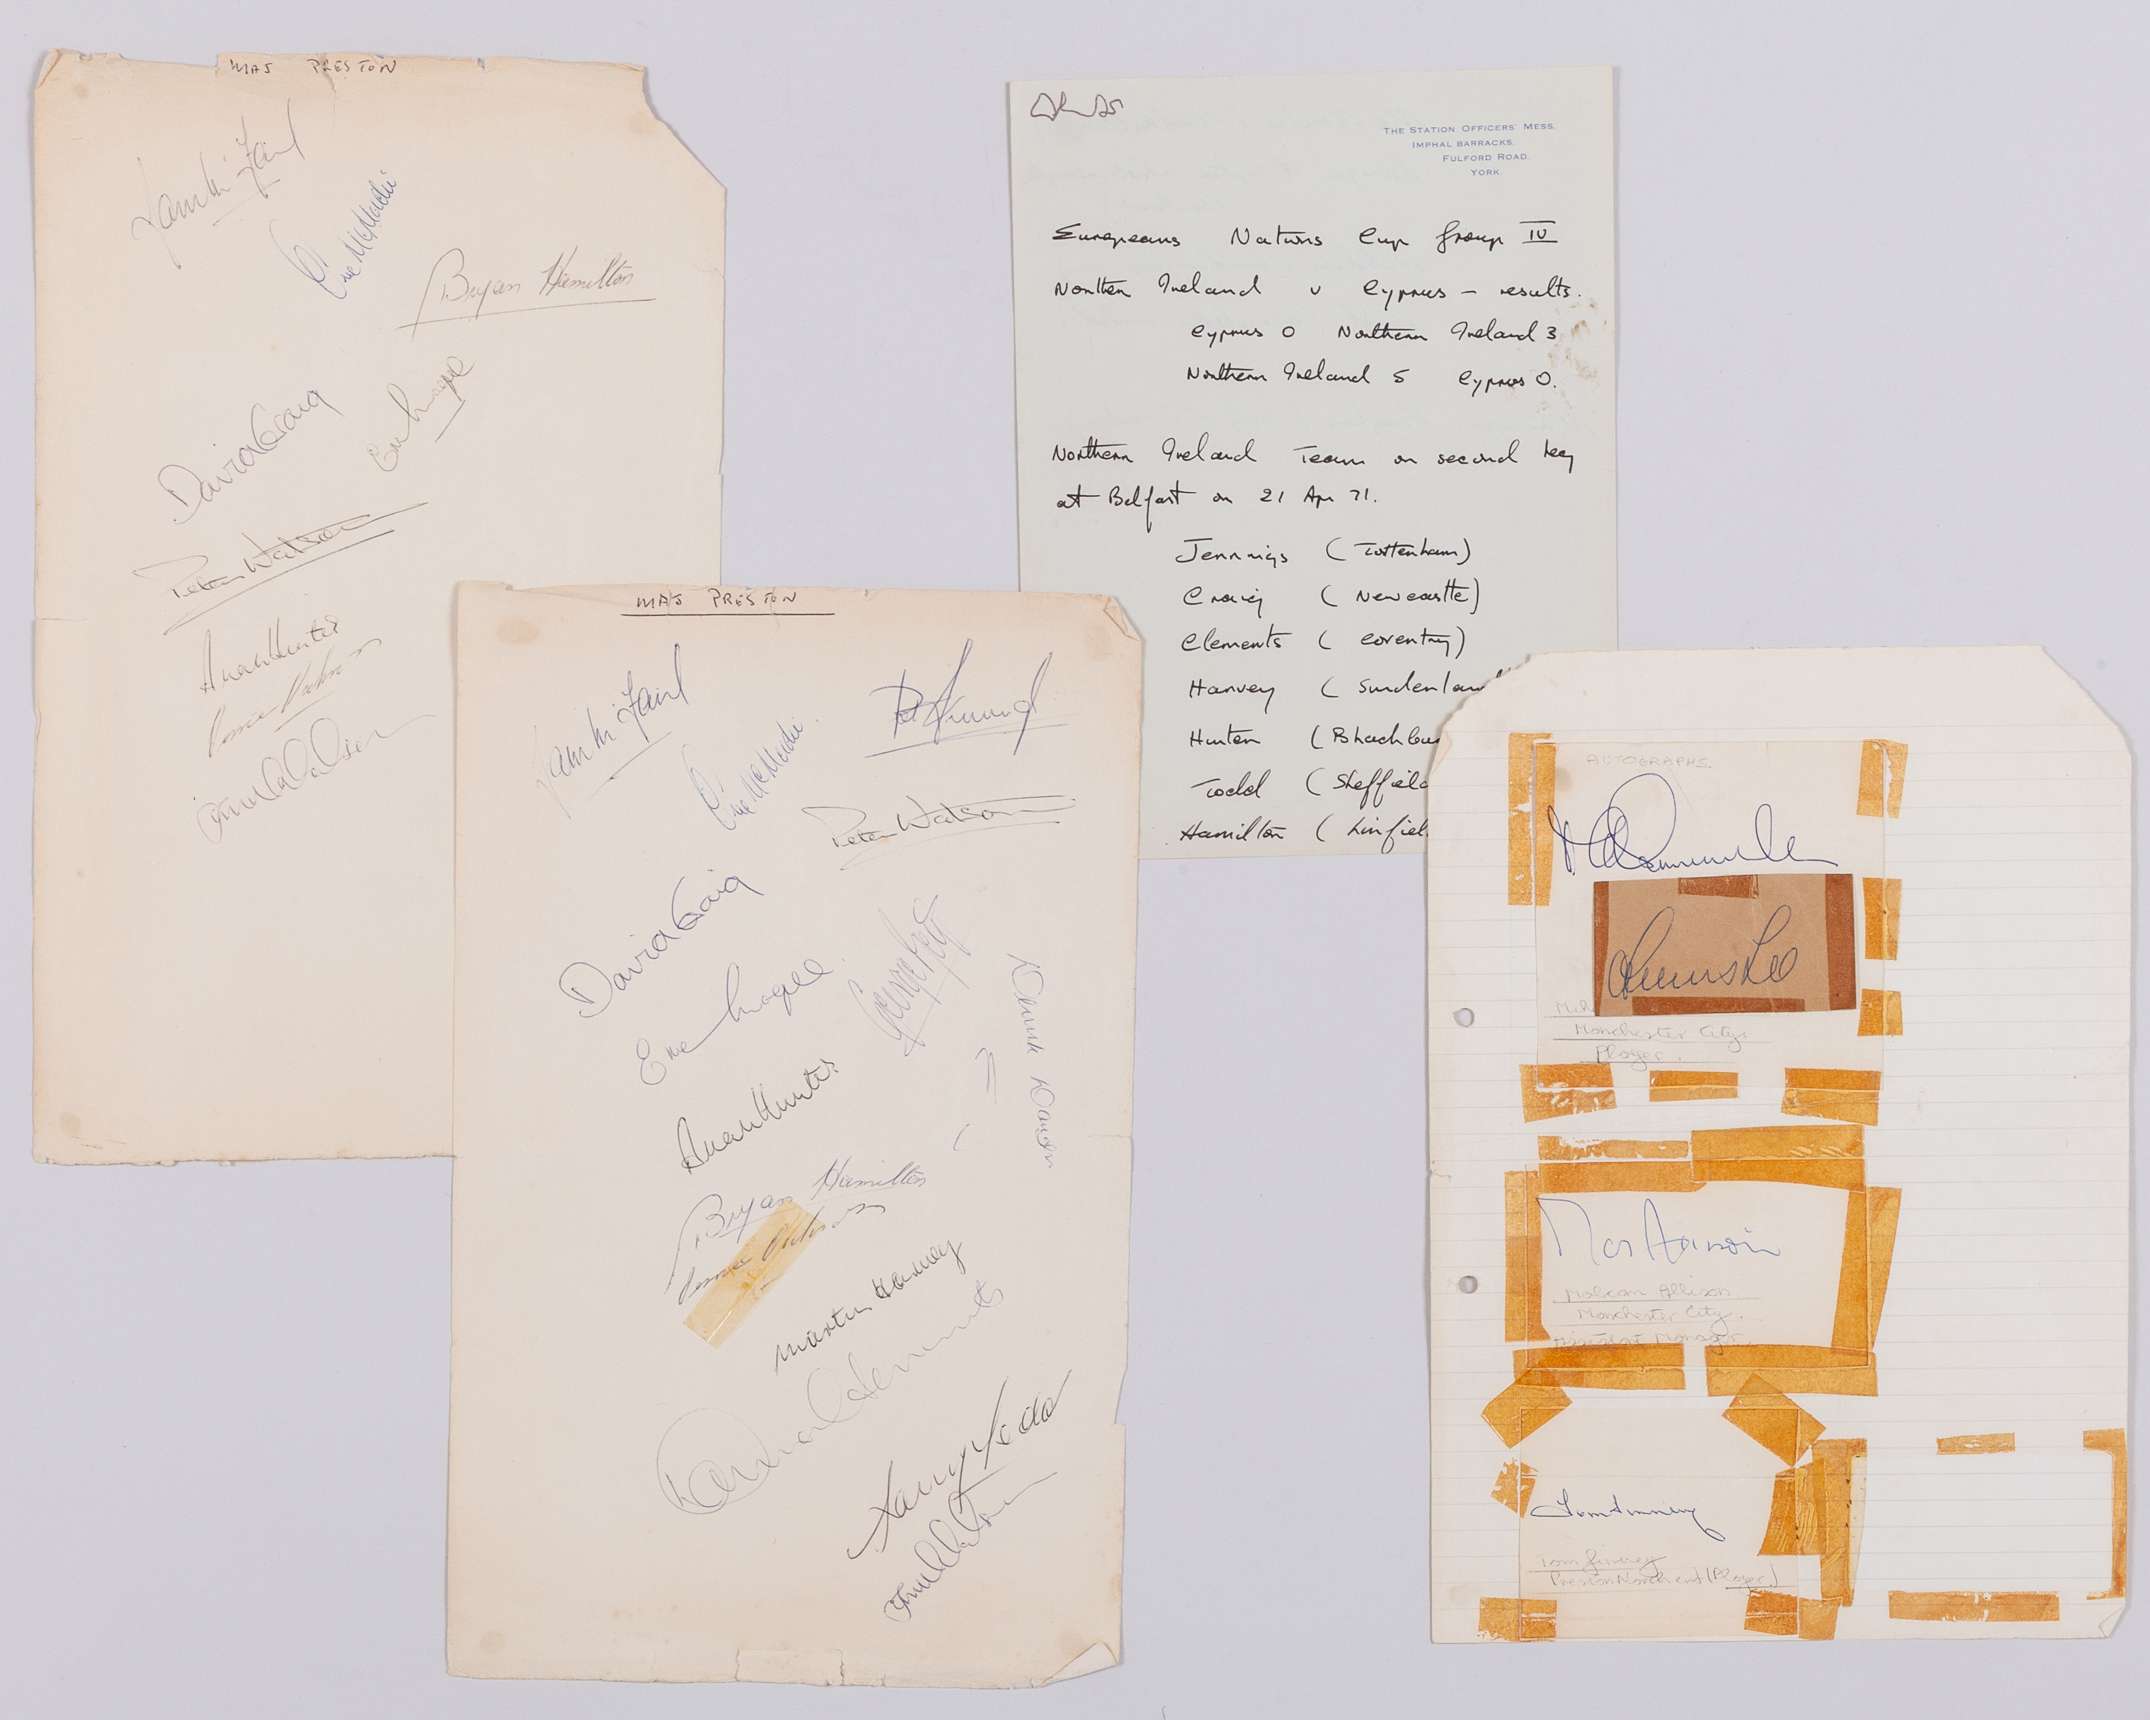 MAJ PRESTON
Eric McMordie
Bryan Hamilton
David Craig
Eric Magee
Peter Watson
Allan Hunter
MAJ PRESTON
Eric McMordie
Peter Watson
David Craig
Eric Magee
George Best
Derek Dougan
Allan Hunter
Bryan Hamilton
Martin Harvey
David Clements
THE STATION OFFICERS' MESS,
IMPHAL BARRACKS,
FULFORD ROAD,
YORK.
Europeans Nations Cup Group IV
Northern Ireland v Cyprus - results.
Cyprus 0 Northern Ireland 3
Northern Ireland 5 Cyprus 0.
Northern Ireland Team on second leg
at Belfast on 21 Apr 71.
Jennings (Tottenham)
Craig (Newcastle)
Clements (Coventry)
Harvey (Sunderlan
Hunter (Blackbu
Todd (Sheffield
Hamilton (Linfiel
AUTOGRAPHS.
M. Summerbee
Francis Lee
Manchester City.
Player.
Malcolm Allison
Manchester City.
Assistant Manager.
Tom Finney
Tom Finney
Preston North end (Player)